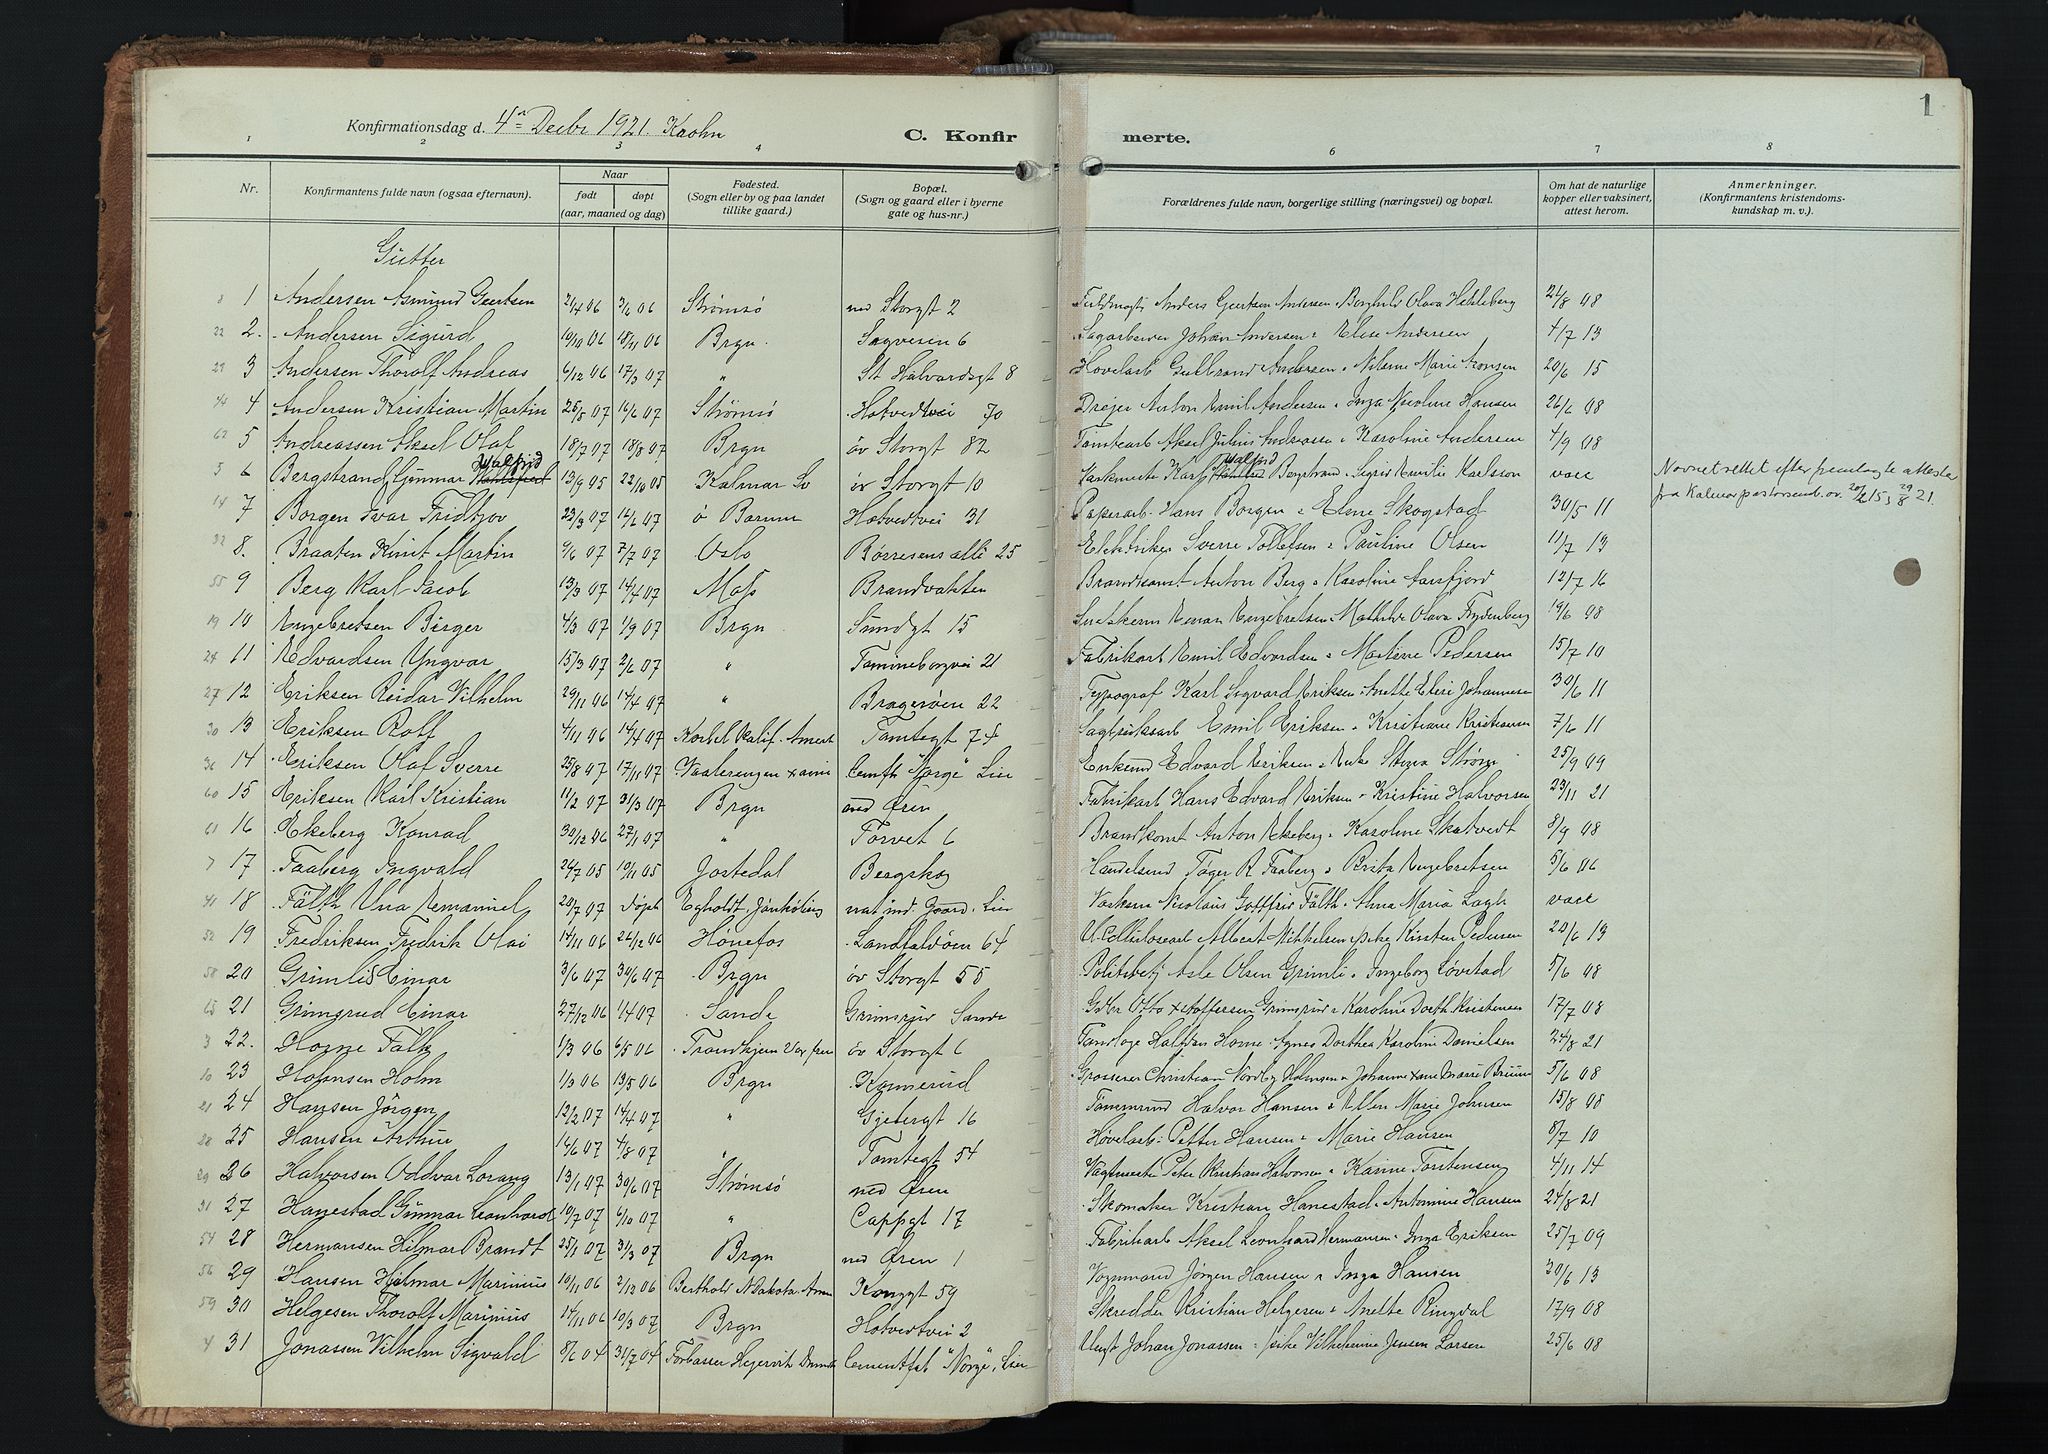 1
Konfirmationsdag d. 4de Decbr 1921. Krohn
C. Konfirmerte.
1 2 3 4 6 7 8
Nr. Konfirmantens fulde navn (ogsaa efternavn). Naar født døpt (aar, maaned og dag) Fødested. (Sogn eller by og paa landet tillike gaard.) Bopæl. (Sogn og gaard eller i byerne gate og hus-nr.) Forældrenes fulde navn, borgerlige stilling (næringsvei) og bopæl. Om hat de naturlige kopper eller vaksinert, attest herom. Anmerkninger. (Konfirmantens kristendomskundskap m. v.)
Gutter
8 1 Andersen Asmund Geertsen 21/4 06 3/6 06 Strømsø ned Storgt 2 Fuldmægt Anders Geertsen Andersen Borghild Olava Hehleberg 24/8 08
22 2. Andersen Sigurd 19/10 06 18/11 06 Brgn. Sagveien 6 Sagarbeider Johan Andersen o Elise Andersen 4/7 13
23 3 Andersen Thorolf Andreas 6/12 06 17/3 07 " St Halvardsgt 8 Høvelarb Gulbrand Andersen o Nilsine Marie Aronsen 20/6 15
44 4 Andersen Kristian Martin 25/8 07 16/6 07 Strømsø Hotvedtvei 70 Drejer Anton Emil Andersen o Inga Nicoline Hansen 26/6 08
62 5 Andreassen Aksel Olaf 18/7 07 18/8 07 Brgn öv Storgt 82 Tomtearb Aksel Julius Andreassen o Karoline Andersen 4/9 08
5 6 Bergstrand, Gunnar Walfrid 13/9 05 22/10 05 Kalmar Sv öv Storgt 10 Værkmester Karl Walfrid Bergstrand o Sigrid Emilie Karlsson vacc Navnet rettet efter fremlagte attester
fra Kalmar pastorsemb. av 20/2 15 & 29/8 21.
14 7 Borgen Ivar Fridtjov 23/3 07 16/6 07 ö Barum Hotvedtvei 31 Papirarb. Hans Borgen o Elene Skogstad 30/5 11
32 8. Braaten Knut Martin 9/6 07 7/7 07 Oslo Börresens alle 25 Elektriker Sverre Tollefsen o Pauline Olsen 11/7 13
55 9 Berg Karl Jacob 13/3 07 14/4 07 Moss Brandvakten Brandkonst Anton Berg o Karoline Aarsfjord 12/7 16
19 10 Engebretsen Birger 4/3 07 1/9 07 Brgn Sundgt 15 Snekkerm Einar Engebretsen o Mathilde Olava Frydenberg 19/6 08
24 11 Edvardsen Yngvar 15/3 07 2/6 07 " Tamineborgvei 21 Fabrikarb Emil Edvardsen o Martine Pedersen 15/7 10
27 12 Eriksen Reidar Vilhelm 29/11 06 14/4 07 " Bragerøien 22 Typograf Karl Sigvard Eriksen o Anette Elesi Johannesen 30/6 11
30 13 Eriksen Rolf 4/11 06 14/4 07 Korbel Kalif. Amerk Tomtegt 74 Sagbruksarb Emil Eriksen o Kristiane Kristiansen 7/6 11
36 14 Eriksen Olaf Sverre 25/8 07 17/11 07 Vaalerengen Kania Cemfb "Norge" Lier Enkemd Edvard Eriksen o Enke Stina Strøm 25/9 09
60 15 Eriksen Karl Kristian 11/2 07 31/3 07 Brgn ned Øren Fabrikarb Hans Edvard Eriksen o Kristine Halvorsen 23/11 21
61 16 Ekeberg Konrad 30/12 06 27/1 07 " Torvet 6 Brandkonst Anton Ekeberg o Karoline Skatvedt 8/9 08
7 17 Faaberg Ingvald 24/7 05 19/11 05 Jostedal Bergskog Handelsmd Töger R. Faaberg o Brita Engebretsen 5/6 06
41 18 Fälth Una Emanuel 20/7 07 döpt Egholdt Jönköbing nat ind. Gaard. Lier Væksem Nicolaus Gottfrid Fälth o Alma Maria Lagh vacc
52 19 Fredriksen Fredrik Olai 14/11 06 26/12 06 Hönefos Landfaldøien 64 U. Cellulosearb Albert Mikkelsen o pike Kirsten Pedersen 20/6 13
58 20 Grimlid Einar 3/6 07 30/6 07 Brgn öv Storgt 55 Politibetj Asle Olsen Grimli o Ingeborg Løvstad 5/6 08
15 21 Grimsrud Einar 27/12 06 1/4 07 Sande Grimsrud Sande Gdbr Otto Kristoffersen Grimsrud o Karoline Dorth Kristensen 17/7 08
3 22. Horne Falk 1/3 06 6/5 06 Trondhjem Vor frue öv Storgt 6 Tandlæge Halfdan Horne o Agnes Dorthea Karoline Danielsen 24/8 21
10 23 Holmsen Holm 1/3 06 13/5 06 Brgn Konnerud Grosserer Christian Nordby Holmsen o Johanne Kane Marie Bruun 5/6 08
21 24 Hansen Jörgen 12/2 07 14/4 07 " Gjetergt 16 Tømmermd Halvor Hansen o Ellen Marie Johnsen 15/8 08
28 25 Hansen Arthur 14/6 07 4/8 07 " Tomtegt 54 Høvelarb: Petter Hansen o Marie Hansen 8/7 10
29 26 Halvorsen Oddvar Lorang 13/1 07 30/6 07 Strømsø ned Øren Vagtmester Peter Kristian Halvorsen o Karine Torstensen 4/11 14
31 27 Hanestad Gunnar Leonhardt 10/7 07 6/10 07 " Cappgt 17 Skomaker Kristian Hanestad o Antomine Hansen 24/8 21
54 28 Hermansen Hilmar Brandt 25/1 07 31/3 07 Brgn ned Øren 1 Fabrikarb Aksel Leonhard Hermansen o Inga Eriksen 25/7 09
56 29 Hansen Hjalmar Marinius 10/11 06 2/12 06 Berthold N Dakota Amr Konggt 59 Vognmand Jørgen Hansen o Inga Hansen 30/6 13
59 30 Helgesen Thorolf Marinius 14/11 06 10/3 07 Brgn Hotvedtvei 2 Skredder Kristian Helgesen o Anette Ringdal 17/9 08
4 31 Jonassen Vilhelm Sigvald 8/6 04 31/7 04 Hegervik Cementfab "Norge", Lier Ungt Johan Jonassen o pike Vilhelmine Jensen Larsen 25/6 08